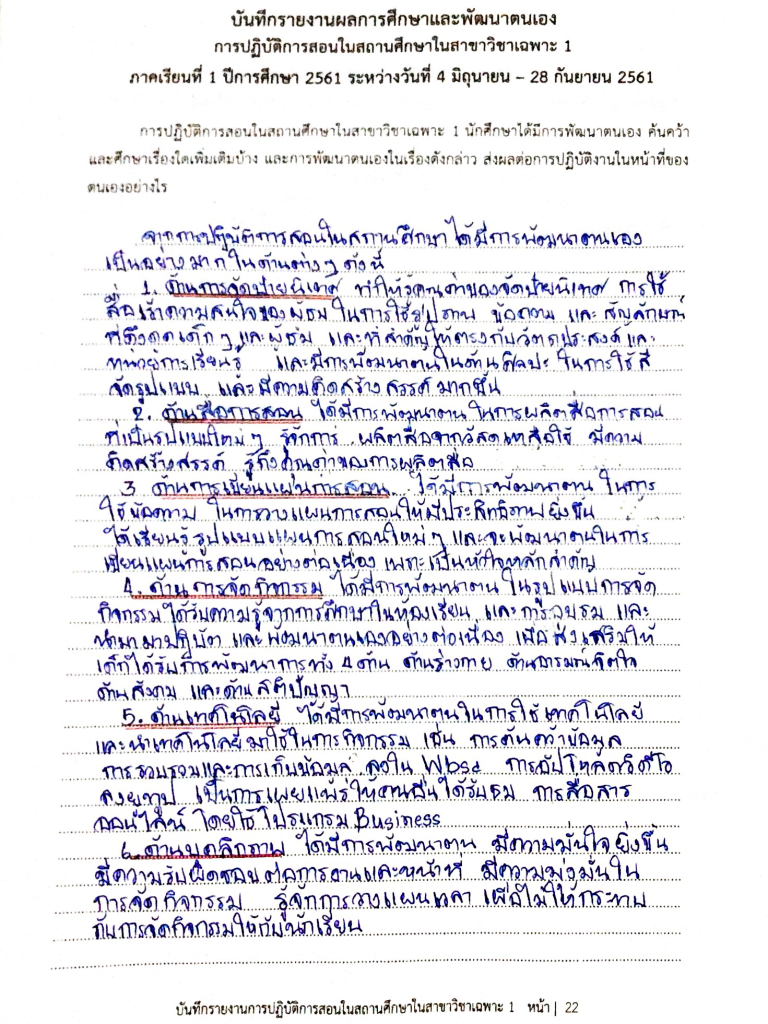 บันทึกรายงานผลการศึกษาและพัฒนาตนเอง
การปฏิบัติการสอนในสถานศึกษาในสาขาวิชาเฉพาะ 1
ภาคเรียนที่ 1 ปีการศึกษา 2561 ระหว่างวันที่ 4 มิถุนายน – 28 กันยายน 2561
การปฏิบัติการสอนในสถานศึกษาในสาขาวิชาเฉพาะ 1 นักศึกษาได้มีการพัฒนาตนเอง ค้นคว้า
และศึกษาเรื่องใดเพิ่มเติมบ้าง และการพัฒนาตนเองในเรื่องดังกล่าว ส่งผลต่อการปฏิบัติงานในหน้าที่ของ
ตนเองอย่างไร
จากการปฏิบัติการสอนในสถานศึกษา ได้มีการพัฒนาตนเอง
เป็นอย่างมากในด้านต่างๆ ดังนี้
1. ด้านการจัดป้ายนิเทศ ทำให้รู้คุณค่าของจัดป้ายนิเทศ การใช้
สื่อเร้าความสนใจของผู้ชม ในการใช้รูปภาพ ข้อความ และ สัญลักษณ์
ที่ดึงดูดเด็กๆ และผู้ชม และที่สำคัญให้ตรงกับวัตถุประสงค์ และ
หน่วยการเรียนรู้ และมีการพัฒนาตนในด้านศิลปะ ในการใช้สี
จัดรูปแบบ และมีความคิดสร้างสรรค์มากขึ้น
2. ด้านสื่อการสอน ได้มีการพัฒนาตน ในการผลิตสื่อการสอน
ที่เป็นรูปแบบใหม่ๆ รู้จักการ ผลิตสื่อจากวัสดุเหลือใช้ มีความ
คิดสร้างสรรค์ รู้ถึงคุณค่าของการผลิตสื่อ
3. ด้านการเขียนแผนการสอน ได้มีการพัฒนาตน ในการ
ใช้ข้อความ ในการวางแผนการสอนให้มีประสิทธิภาพยิ่งขึ้น
ได้เรียนรู้รูปแบบแผนการสอนใหม่ๆ และจะพัฒนาตนในการ
เขียนแผนการสอนอย่างต่อเนื่อง เพราะเป็นหัวใจหลักสำคัญ
4. ด้านการจัดกิจกรรม ได้มีการพัฒนาตน ในรูปแบบการจัด
กิจกรรมได้รับความรู้จากการศึกษาในห้องเรียน และการอบรม และ
นำมามาปฏิบัติ และพัฒนาตนเองอย่างต่อเนื่อง เพื่อส่งเสริมให้
เด็กได้รับการพัฒนาการทั้ง 4 ด้าน ด้านร่างกาย ด้านอารมณ์จิตใจ
ด้านสังคม และด้านสติปัญญา
5. ด้านเทคโนโลยี ได้มีการพัฒนาตนในการใช้เทคโนโลยี
และนำเทคโนโลยีมาใช้ในการกิจกรรม เช่น การค้นคว้าข้อมูล
การรวบรวมและการเก็บข้อมูล ลงใน การอัปโหลดวิดีโอ
ลงยูทูป เป็นการเผยแพร่ให้คนอื่นได้รับชม การสื่อสาร
ออนไลน์ โดยใช้โปรแกรม Business
6. ด้านบุคลิกภาพ ได้มีการพัฒนาตน มีความมั่นใจยิ่งขึ้น
มีความรับผิดชอบต่อการงานและหน้าที่ มีความมุ่งมั่นใน
การจัดกิจกรรม รู้จักการวางแผนเวลา เพื่อไม่ให้กระทบ
กับการจัดกิจกรรมให้กับนักเรียน
บันทึกรายงานการปฏิบัติการสอนในสถานศึกษาในสาขาวิชาเฉพาะ 1 หน้า | 22